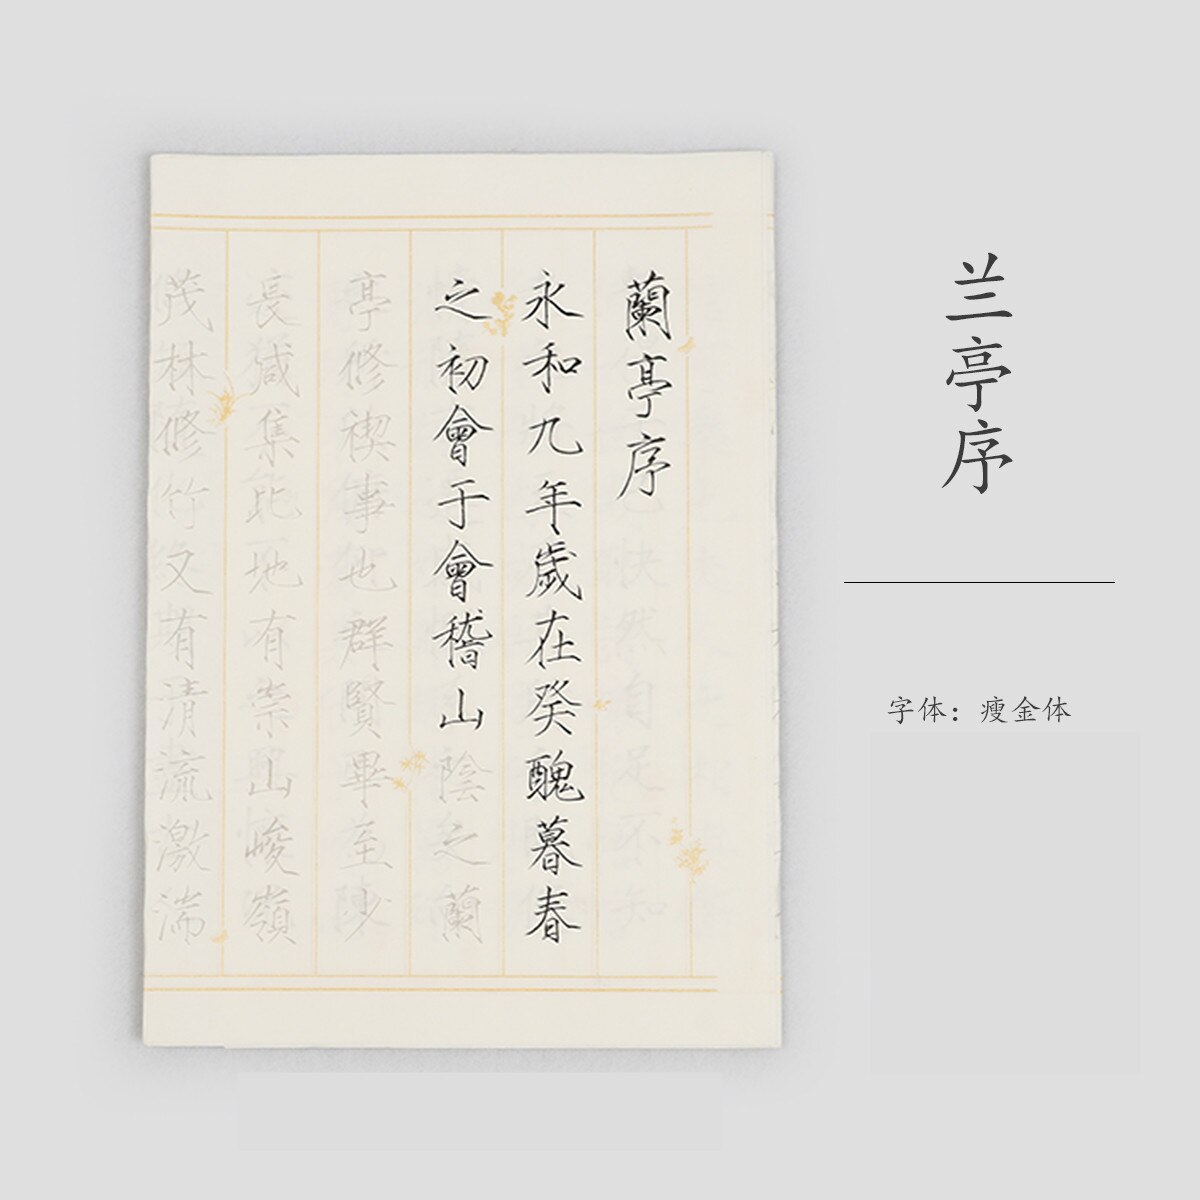 蘭亭序
永和九年歲在癸醜暮春
之初會于會稽山陰之蘭
亭修禊事也群賢畢至少
長鹹集此地有崇山峻嶺
茂林修竹又有清流激湍
快然自足不知
兰亭序
字体：瘦金体